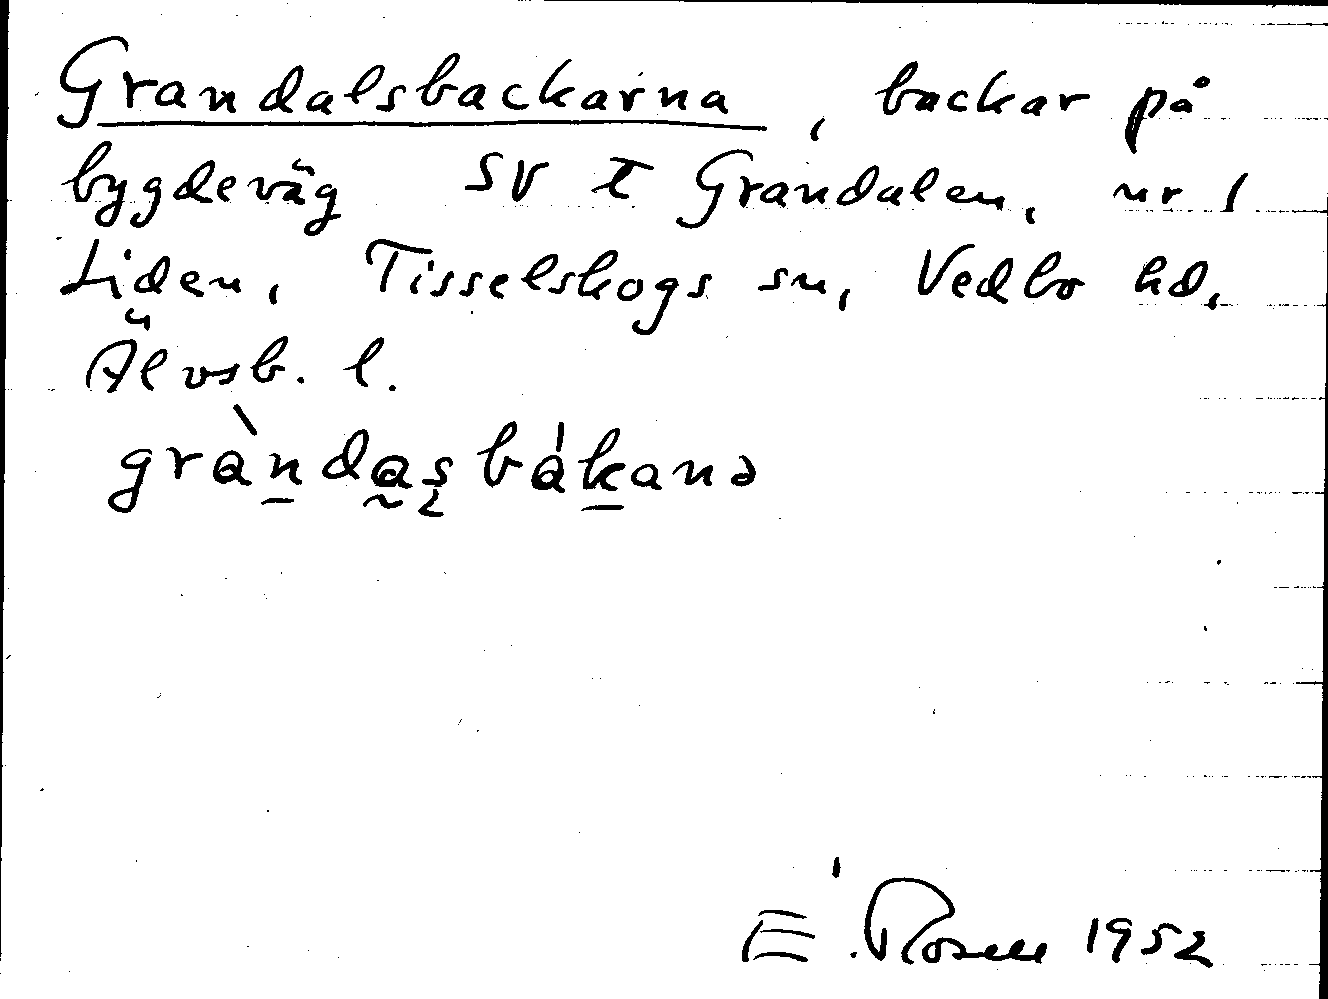 Grandalsbackarna, backar på
bygdeväg SV t Grandalen, nr 1
Liden, Tisselskogs sn, Vedbo hd,
Älvsb. l.
gràn̲da̰ş bák̲anə
E. Rosell 1952